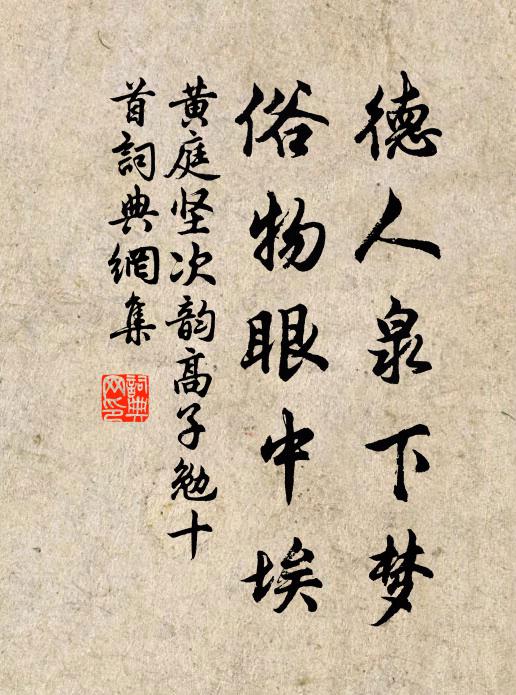 德人泉下梦
俗物眼中埃
黄庭坚次韵高子勉十
首词典網集
詞典
网印